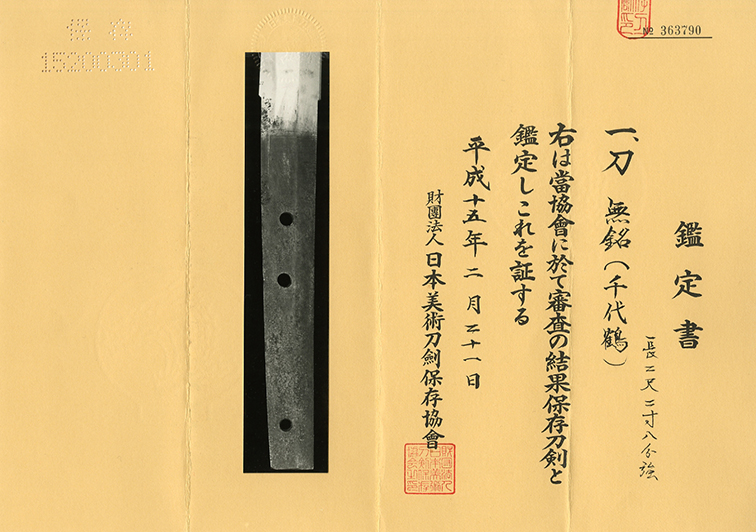 № 363790
鑑定書
長二尺二寸八分強
一、刀 無銘(千代鶴)
右は當協會に於て審査の結果保存刀剣と
鑑定しこれを証する
平成十五年二月二十一日
財團法人 日本美術刀劍保存協會
保存
15200301